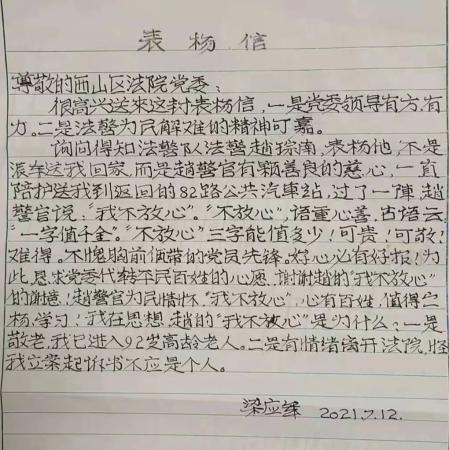 表杨信
尊敬的西山区法院党委：
很高兴送来这封表杨信，一是党委领导有方，有
力。二是法警为民解难的精神可嘉。
询问得知法警队法警赵琮南，表杨他，不是
派车送我回家，而是赵警官有颗善良的慈心，一直
陪护送我到返回的82路公共汽車站，过了一陣，趙
警官说，“我不放心”。“不放心”，语重心善，古语云，
“一字值千金”。“不放心”三字能值多少！可贵！可敬！
难得。不愧胸前佩带的党员先锋。好心必有好报！为
此，恳求党委代转平民百姓的心愿，谢谢赵的“我不放心”
的谢意！趙警官为民情怀，“我不放心”，心有百姓，值得
杨，学习！我在思想，趙的“我不放心”是为什么？一是
敬老，我已进入92岁高龄老人。二是有情绪离开法院，怪
我立案起诉书不应是个人。
梁应 2021.7.12.